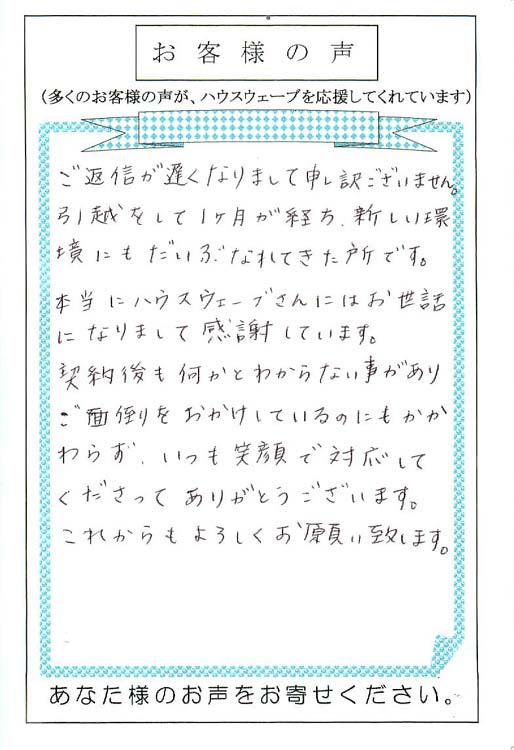 お客様の声
（多くのお客様の声が、ハウスウェーブを応援してくれています）
ご返信が遅くなりまして申し訳ございません。
引越をして1ヶ月が経ち、新しい環
境にもだいぶなれてきた所です。
本当にハウスウェーブさんにはお世話
になりまして感謝しています。
契約後も何かとわからない事があり
ご面倒をおかけしているのにもかか
わらず、いつも笑顔で対応して
くださってありがとうございます。
これからもよろしくお願い致します。
あなた様のお声をお寄せください。